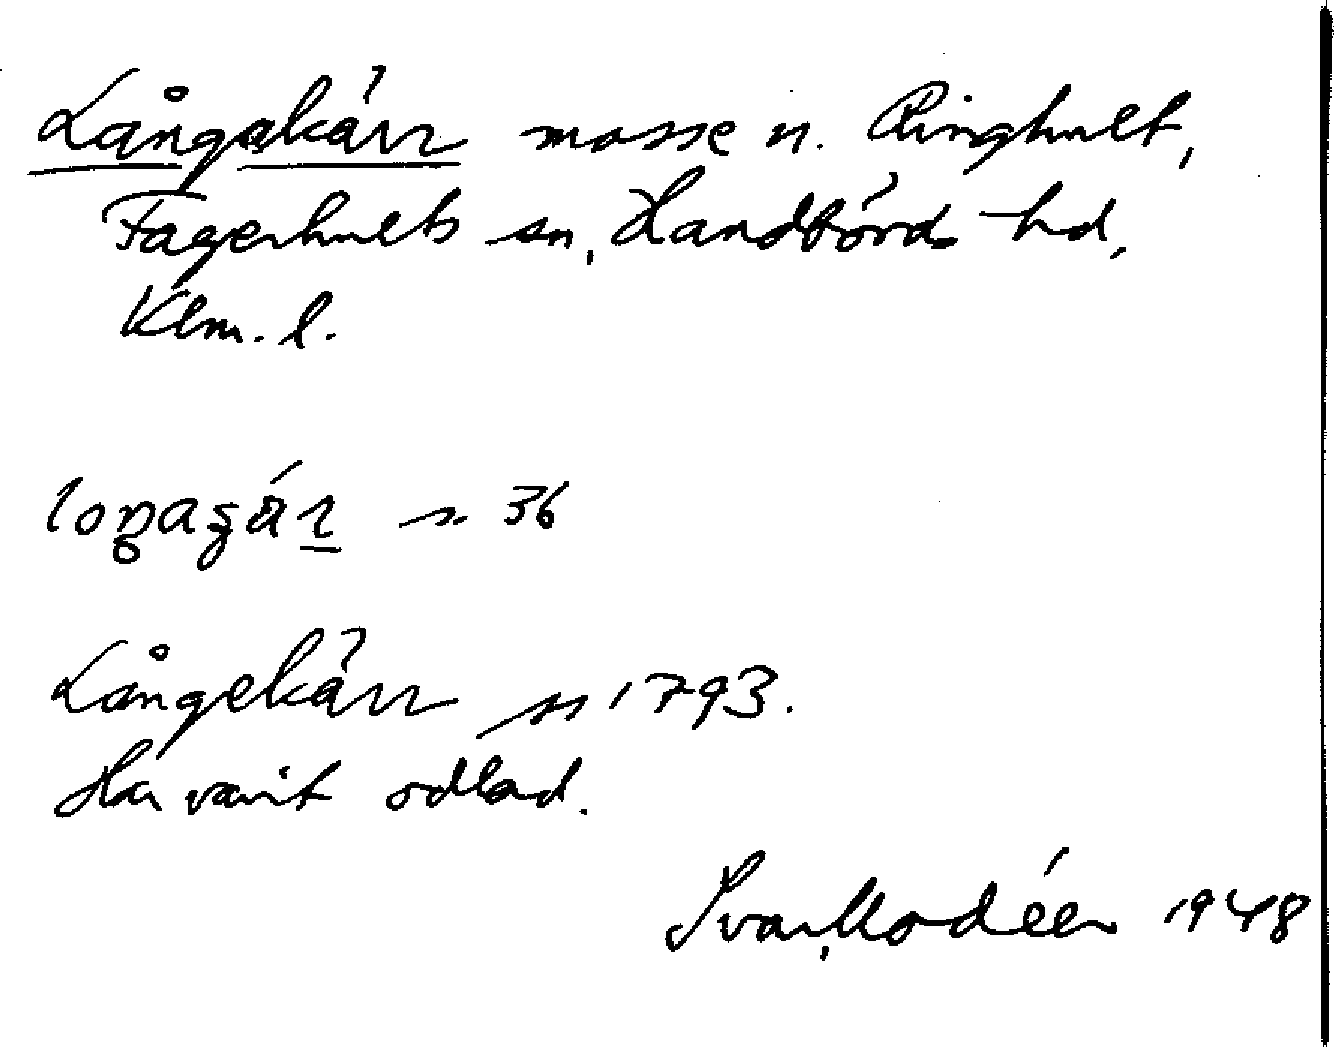 Långekärr mosse n. Ringhult,
Fagerhults sn, Handbörds hd,
Klm. l.
36
Långekärr 1793.
Har varit odlad.
Ivar Modéer 1948